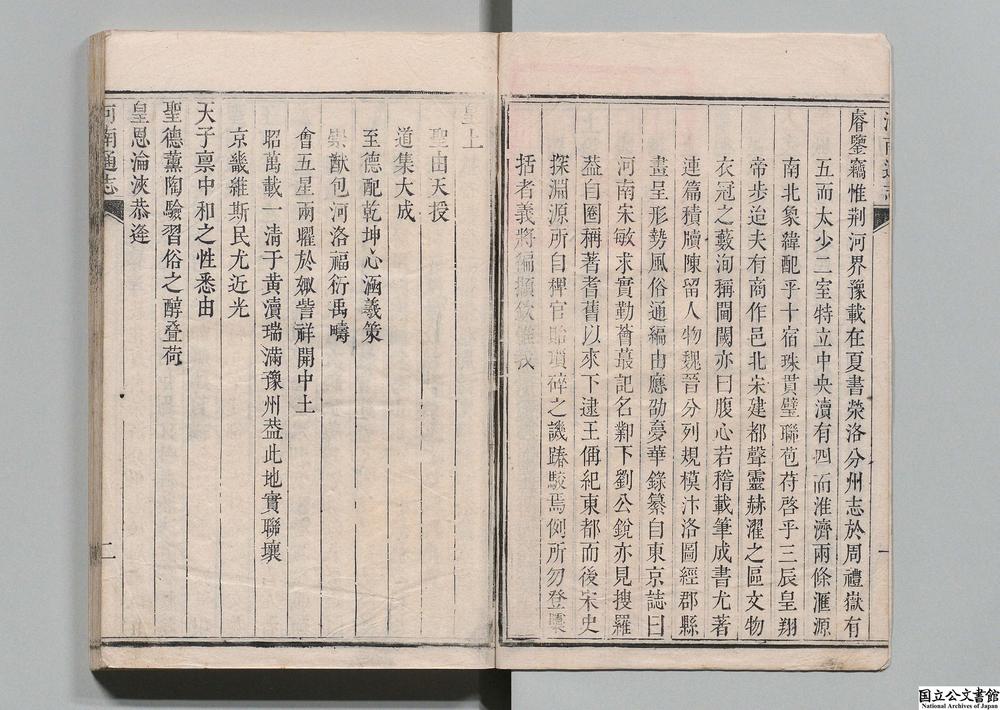 睿鑒竊惟荆河界豫載在夏書滎洛分州志於周禮嶽有
五而太少二室特立中央瀆有四而淮濟兩條滙源
南北象緯配乎十宿珠貫璧聯苞苻啓乎三辰皇翔
帝步迨夫有商作邑北宋建都聲靈赫濯之區文物
衣冠之藪洵稱閫閾亦曰腹心若稽載筆成書尤著
連篇積牘陳留人物魏晉分列規模汴洛圖經郡縣
畫呈形勢風俗通編由應劭夢華錄纂自東京誌曰
河南宋敏求實勤薈蕞記名鄴下劉公銳亦見搜羅
葢自圈稱著耆舊以來下逮王偁紀東都而後宋史
探淵源所自稗官貽瑣碎之譏踳駮焉例所勿登
括者義將編
河南通志
一
皇上
聖由天授
道集大成
至德配乾坤心涵羲策
崇猷包河洛福衍禹疇
會五星兩曜於娵訾祥開中土
昭萬載一清于黃瀆瑞滿豫州葢此地實聯壤
京畿維斯民尤近光
天子禀中和之性悉由
聖德薰陶驗習俗之醇叠荷
皇恩淪浹恭逢
河南通志
二
国立公文書館
National Archives of Japan